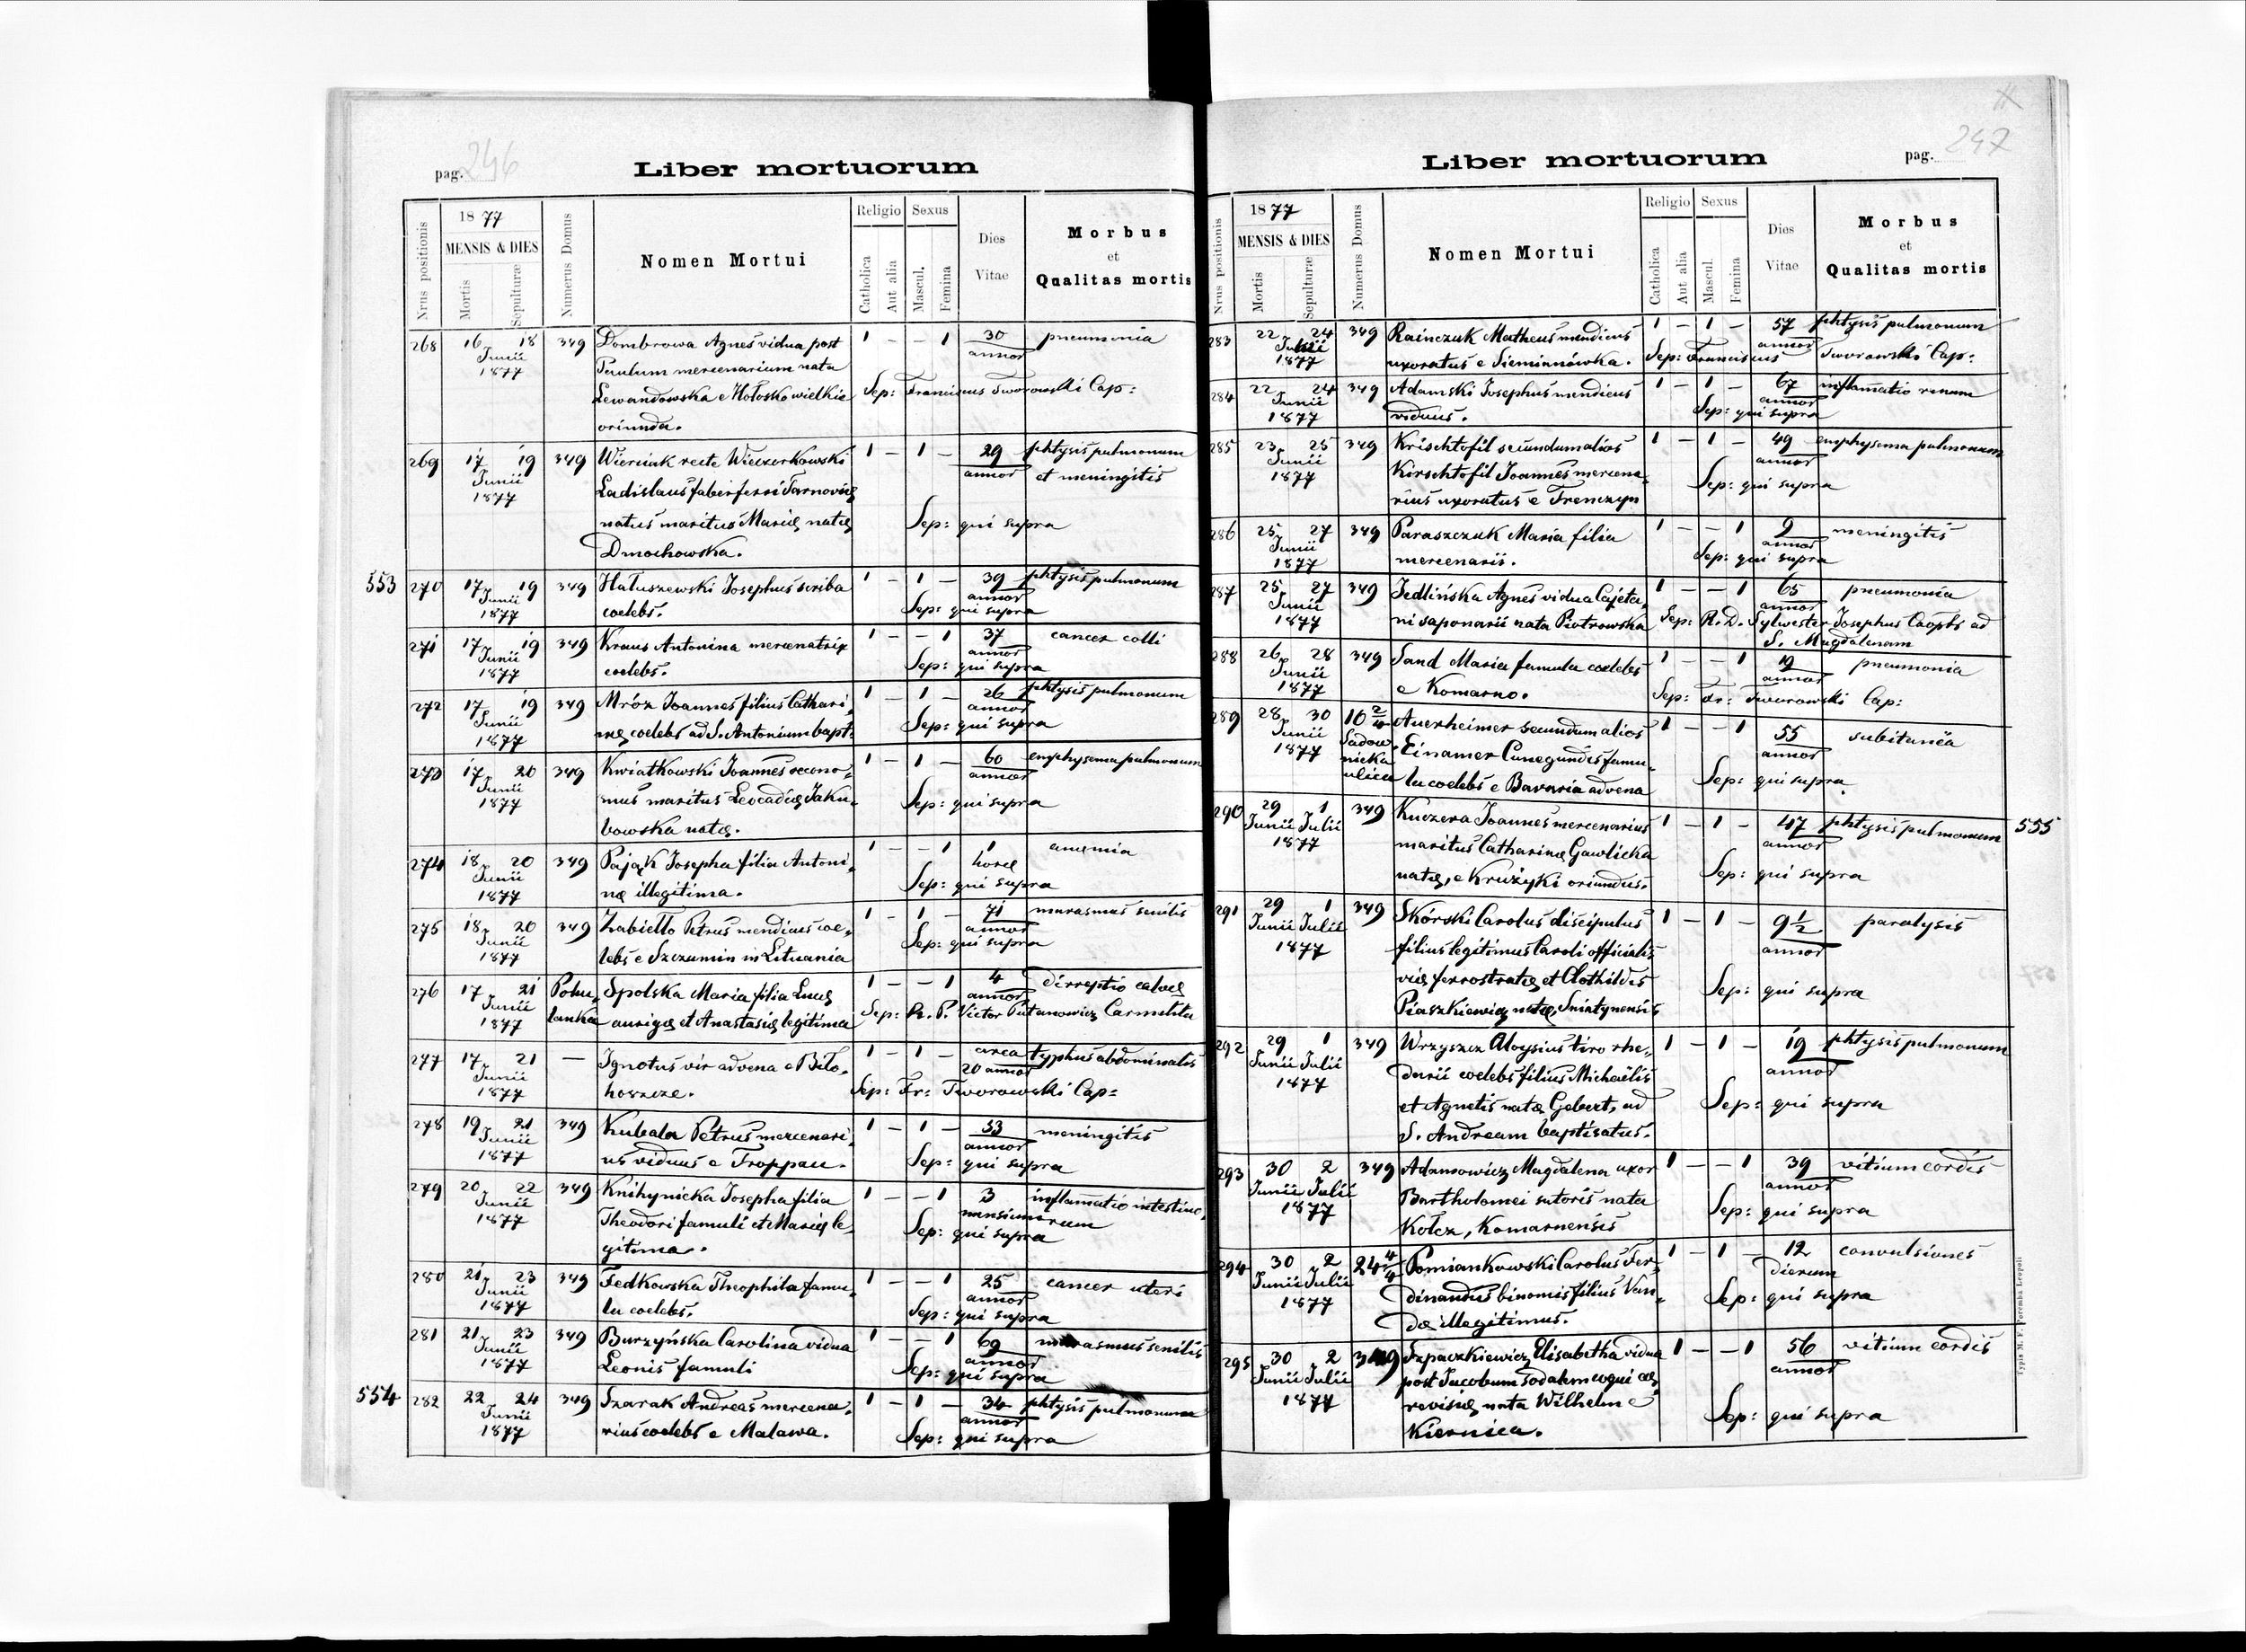 pag. 246
Liber mortuorum
Nrus positionis
1877
MENSIS & DIES
Mortis
Sepulturæ
Numerus Domus
Nomen Mortui
Religio
Catholica
Aut alia
Sexus
Mascul.
Femina
Dies Vitae
Morbus
et
Qualitas mortis
268 16 18 349 Dombrowa Agnes vidua post 1 - - 1 30 pneumonia
Junii Paulum mercenarium nata annor
1877 Lewandowska e Hołosko wielkie Sep: Franciscus Tworowski Cap:
oriunda.
269 17 19 349 Wierciak recte Wieczerkowski 1 - 1 - 29 phtysis pulmonum
Junii Ladislaus faber ferri Tarnoviæ annor et meningitis
1877 natus maritus Mariæ natæ Sep: qui supra
Dmochowska.
553 270 17 19 349 Hałuszewski Josephus scriba 1 - 1 - 39 phtysis pulmonum
Junii 1877 coelebs. annor Sep: qui supra
271 17 19 349 Kraus Antonina mercenatrix 1 - - 1 37 cancer colli
Junii 1877 coelebs. annor Sep: qui supra
272 17 19 349 Mróz Joannes filius Cathari- 1 - 1 - 26 phtysis pulmonum
Junii 1877 næ coelebs ad S. Antonium bapt: annor Sep: qui supra
273 17 20 349 Kwiatkowski Joannes oecono- 1 - 1 - 60 emphysema pulmonum
Junii 1877 mus maritus Leocadiæ Jaku- annor Sep: qui supra
bowska natæ.
274 18 20 349 Pająk Josepha filia Antoni- 1 - - 1 1 anemia
Junii 1877 næ illegitima. horæ Sep: qui supra
275 18 20 349 Zabiełło Petrus mendicus coe- 1 - 1 - 71 marasmus senilis
Junii 1877 lebs e Szczumin in Lituania annor Sep: qui supra
276 17 21 Pohu- Spolska Maria filia Lucæ 1 - - 1 4 dirreptio calvæ
Junii 1877 lanka aurigæ et Anastasiæ legitima annor Sep: R. P. Victor Putanowicz Carmelita
277 17 21 — Ignotus vir advena e Biło- 1 - 1 - circa typhus abdominalis
Junii 1877 horszcze. 20 annor Sep: Fr: Tworowski Cap:
278 19 21 349 Kubala Petrus mercenari- 1 - 1 - 53 meningitis
Junii 1877 us viduus e Troppau. annor Sep: qui supra
279 20 22 349 Knihynicka Josepha filia 1 - - 1 3 inflamatio intestino-
Junii 1877 Theodori famuli et Mariæ le- mensium rum
gitima. Sep: qui supra
280 21 23 349 Fedkowska Theophila famu- 1 - - 1 25 cancer uteri
Junii 1877 la coelebs. annor Sep: qui supra
281 21 23 349 Burzyńska Carolina vidua 1 - - 1 69 marasmus senilis
Junii 1877 Leonis famuli annor Sep: qui supra
554 282 22 24 349 Szarak Andreas mercena- 1 - 1 - 34 phtysis pulmonum
Junii 1877 rius coelebs e Malawa. annor Sep: qui supra
pag. 247
Liber mortuorum
Nrus positionis
1877
MENSIS & DIES
Mortis
Sepulturæ
Numerus Domus
Nomen Mortui
Religio
Catholica
Aut alia
Sexus
Mascul.
Femina
Dies Vitae
Morbus
et
Qualitas mortis
283 22 24 349 Rainczuk Matheus mendicus 1 - 1 - 57 phtysis pulmonum
Junii 1877 uxoratus e Siemianówka. annor Sep: Franciscus Tworowski Cap:
284 22 24 349 Adamski Josephus mendicus 1 - 1 - 67 inflamatio renum
Junii 1877 viduus. annor Sep: qui supra
285 23 25 349 Krischtofil secundum alios 1 - 1 - 49 emphysema pulmonum
Junii 1877 Kirschtofil Joannes mercena- annor
rius uxoratus e Trenczyn Sep: qui supra
286 25 27 349 Paraszczuk Maria filia 1 - - 1 9 meningitis
Junii 1877 mercenarii. annor Sep: qui supra
287 25 27 349 Jedlińska Agnes vidua Cajeta- 1 - - 1 65 pneumonia
Junii 1877 ni saponarii nata Piotrowska annor Sep: R. D. Sylwester Josephus Coopts ad
S. Magdalenam
288 26 28 349 Sand Maria famula coelebs 1 - - 1 19 pneumonia
Junii 1877 e Komarno. annor Sep: Fr: Tworowski Cap:
289 28 30 16 2/4 Auerheimer secundum alios 1 - - 1 55 subitanëa
Junii 1877 Sadow- Einamer Cunegundis famu- annor
nicka ulica la coelebs e Bavaria advena Sep: qui supra
290 29 1 349 Kuczera Joannes mercenarius 1 - 1 - 47 phtysis pulmonum 555
Junii Julii 1877 maritus Catharinæ Gawlicka annor
natæ, e Krużyki oriundus. Sep: qui supra
291 29 1 349 Skórski Carolus discipulus 1 - 1 - 9 1/2 paralysis
Junii Julii 1877 filius legitimus Caroli officialis annor
viæ ferrostratæ et Clothildis Sep: qui supra
Piaszkiewicz natæ, Sniatynensis
292 29 1 349 Wrzyszcz Aloysius tiro rhe- 1 - 1 - 19 phtysis pulmonum
Junii Julii 1877 darii coelebs filius Michaëlis annor
et Agnetis natæ Gebert, ad Sep: qui supra
S. Andream baptisatus.
293 30 2 349 Adamowicz Magdalena uxor 1 - - 1 39 vitium cordis
Junii Julii 1877 Bartholomei sutoris nata annor
Kołcz, Komarnensis Sep: qui supra
294 30 2 24 4/4 Pomiankowski Carolus Fer- 1 - 1 - 12 convulsiones
Junii Julii 1877 dinandus binomis filius Van- dierum
dæ illegitimus. Sep: qui supra
295 30 2 349 Szpaczkiewicz Elisabetha vidua 1 - - 1 56 vitium cordis
Junii Julii 1877 post Jacobum sodalem coqui ce- annor
revisiæ nata Wilhelm e Sep: qui supra
Kiernica.
Typis M. F. Poremba Leopoli